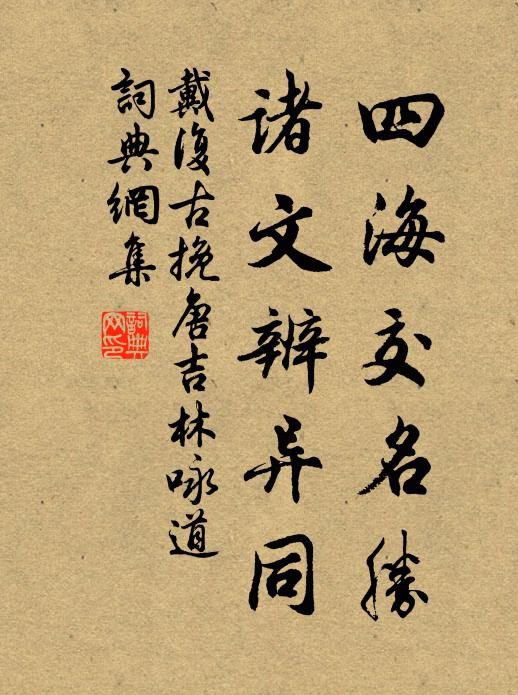 四海交名勝
諸文辨异同
戴復古挽唐吉林咏道
詞典網集
詞典网印